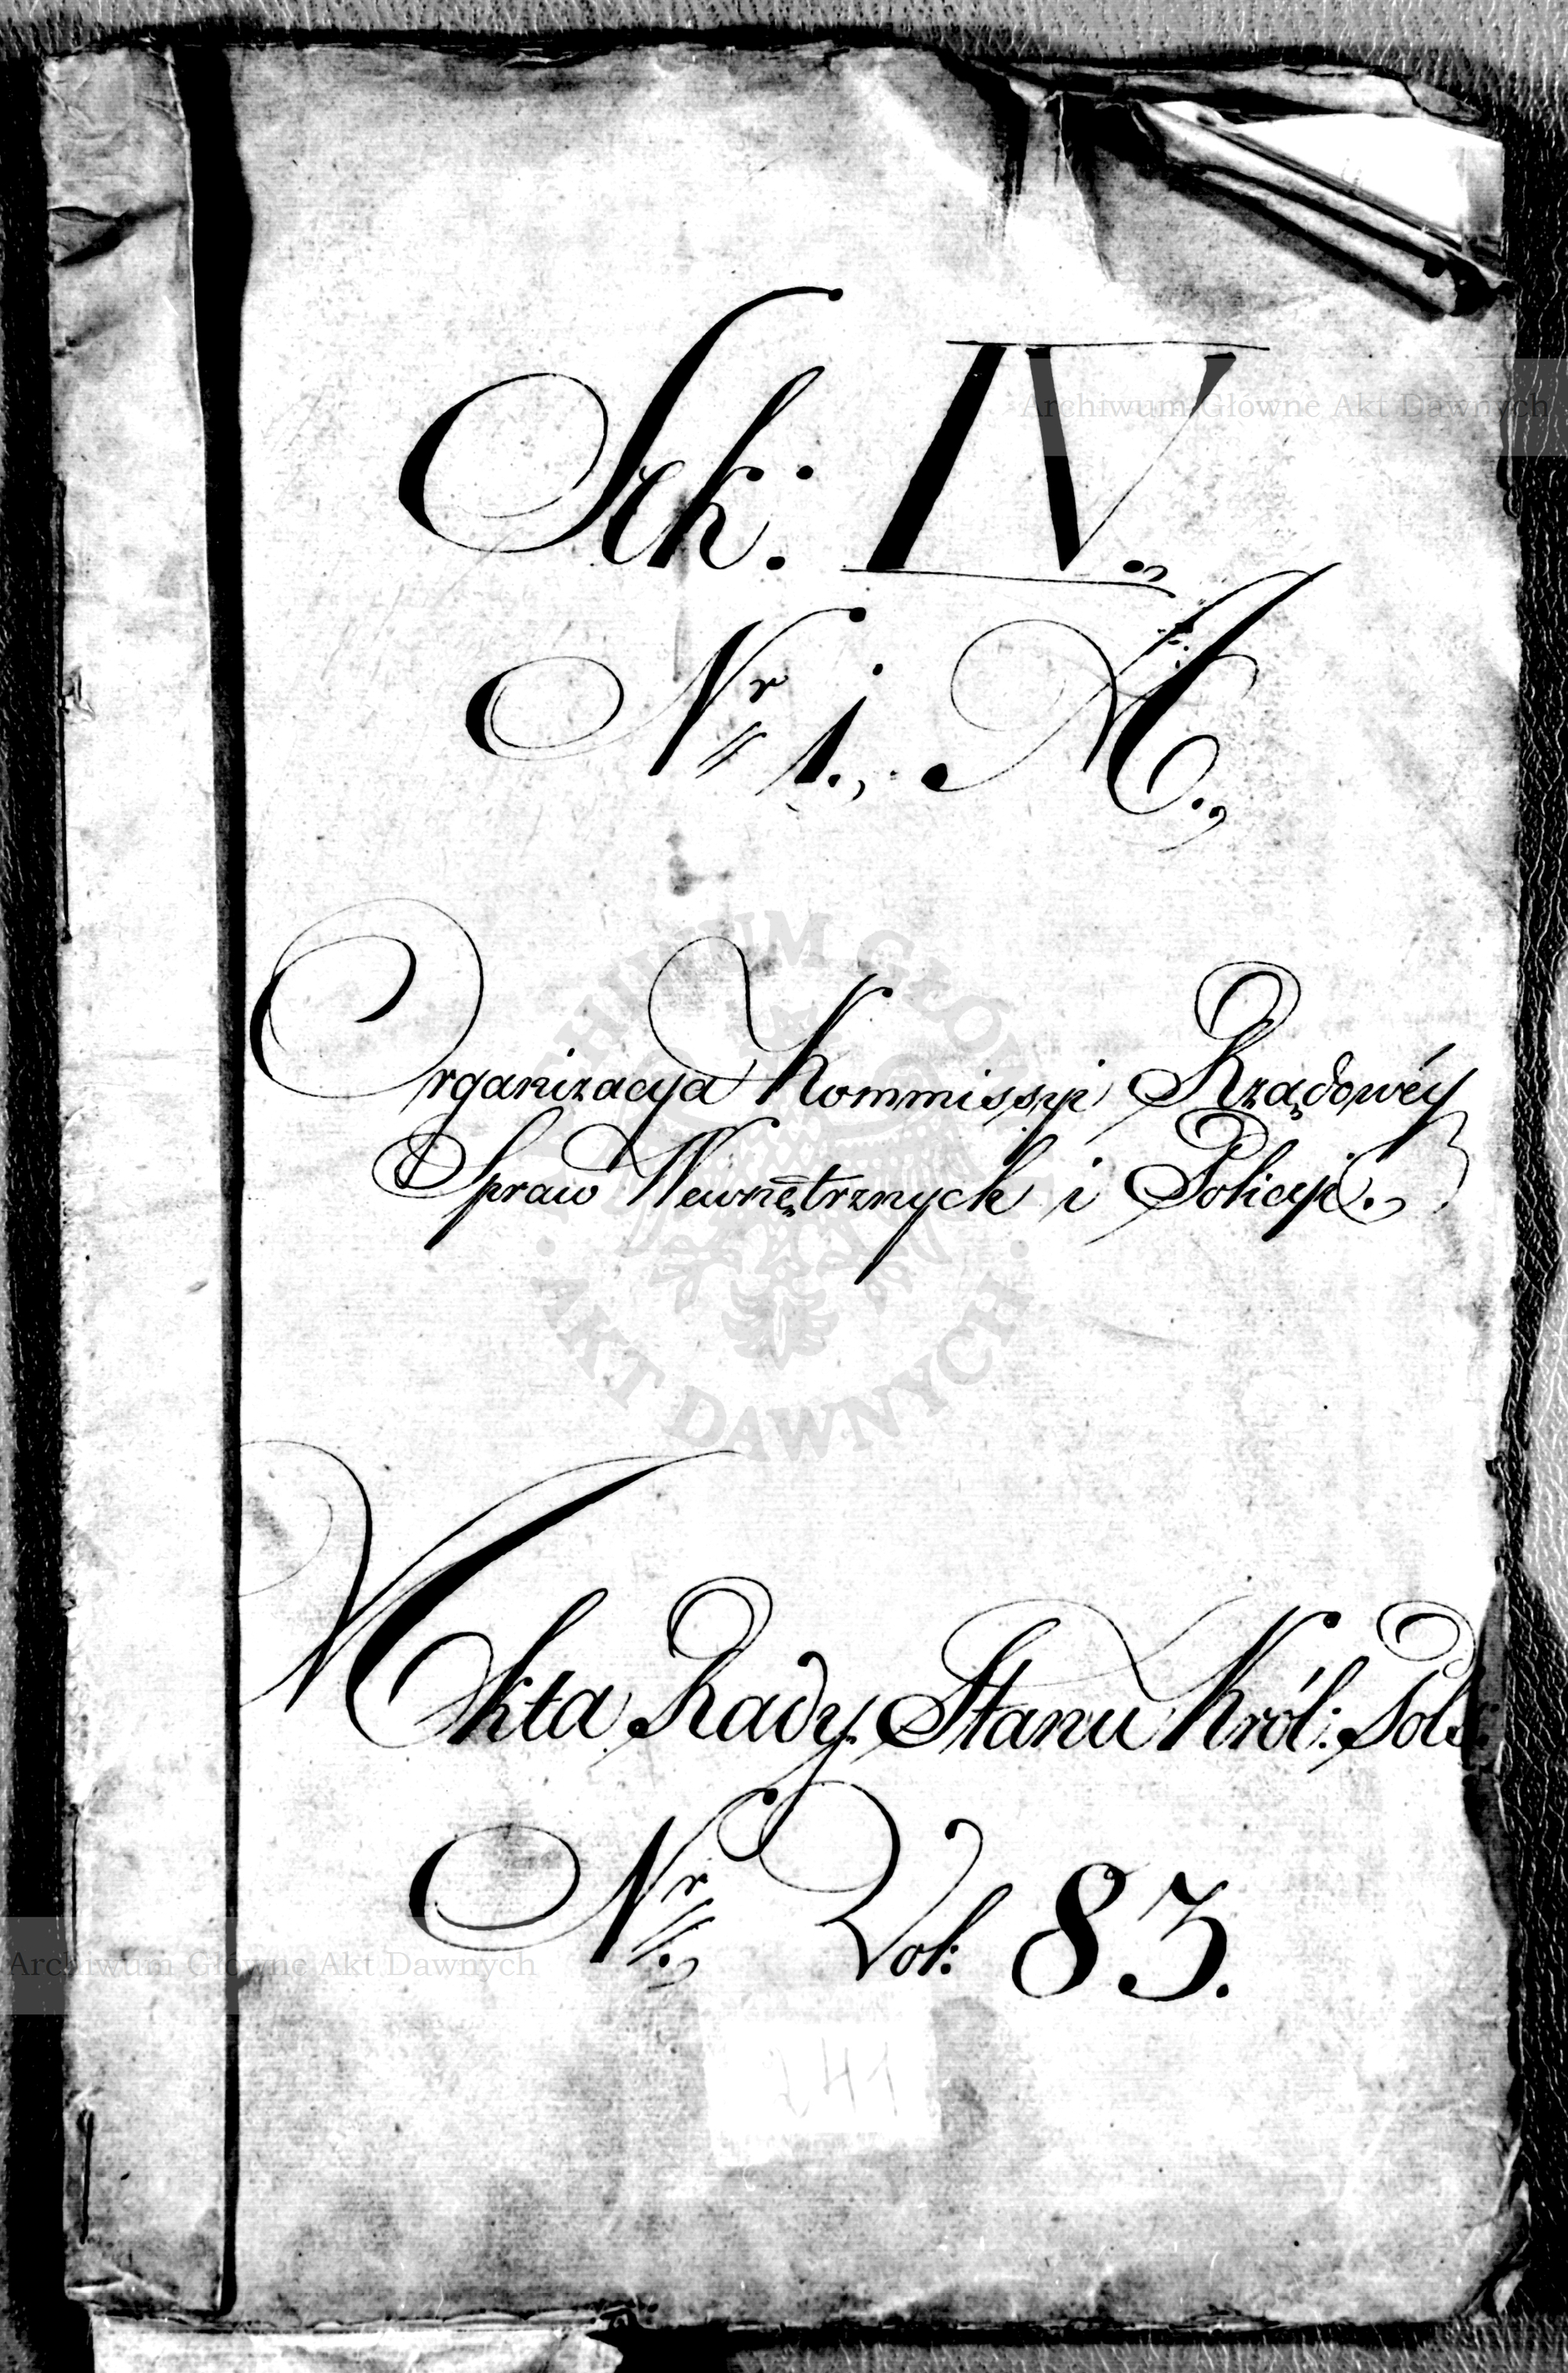 Sek: IV.
Nr 1., A.,
Organizacya Kommissyi Rządowéy
Spraw Wewnętrznych i Policyi.
Akta Rady Stanu Król: Pols:
Nr. Vol: 83.
241
Archiwum Główne Akt Dawnych
ARCHIWUM GŁÓWNE
AKT DAWNYCH
Archiwum Główne Akt Dawnych